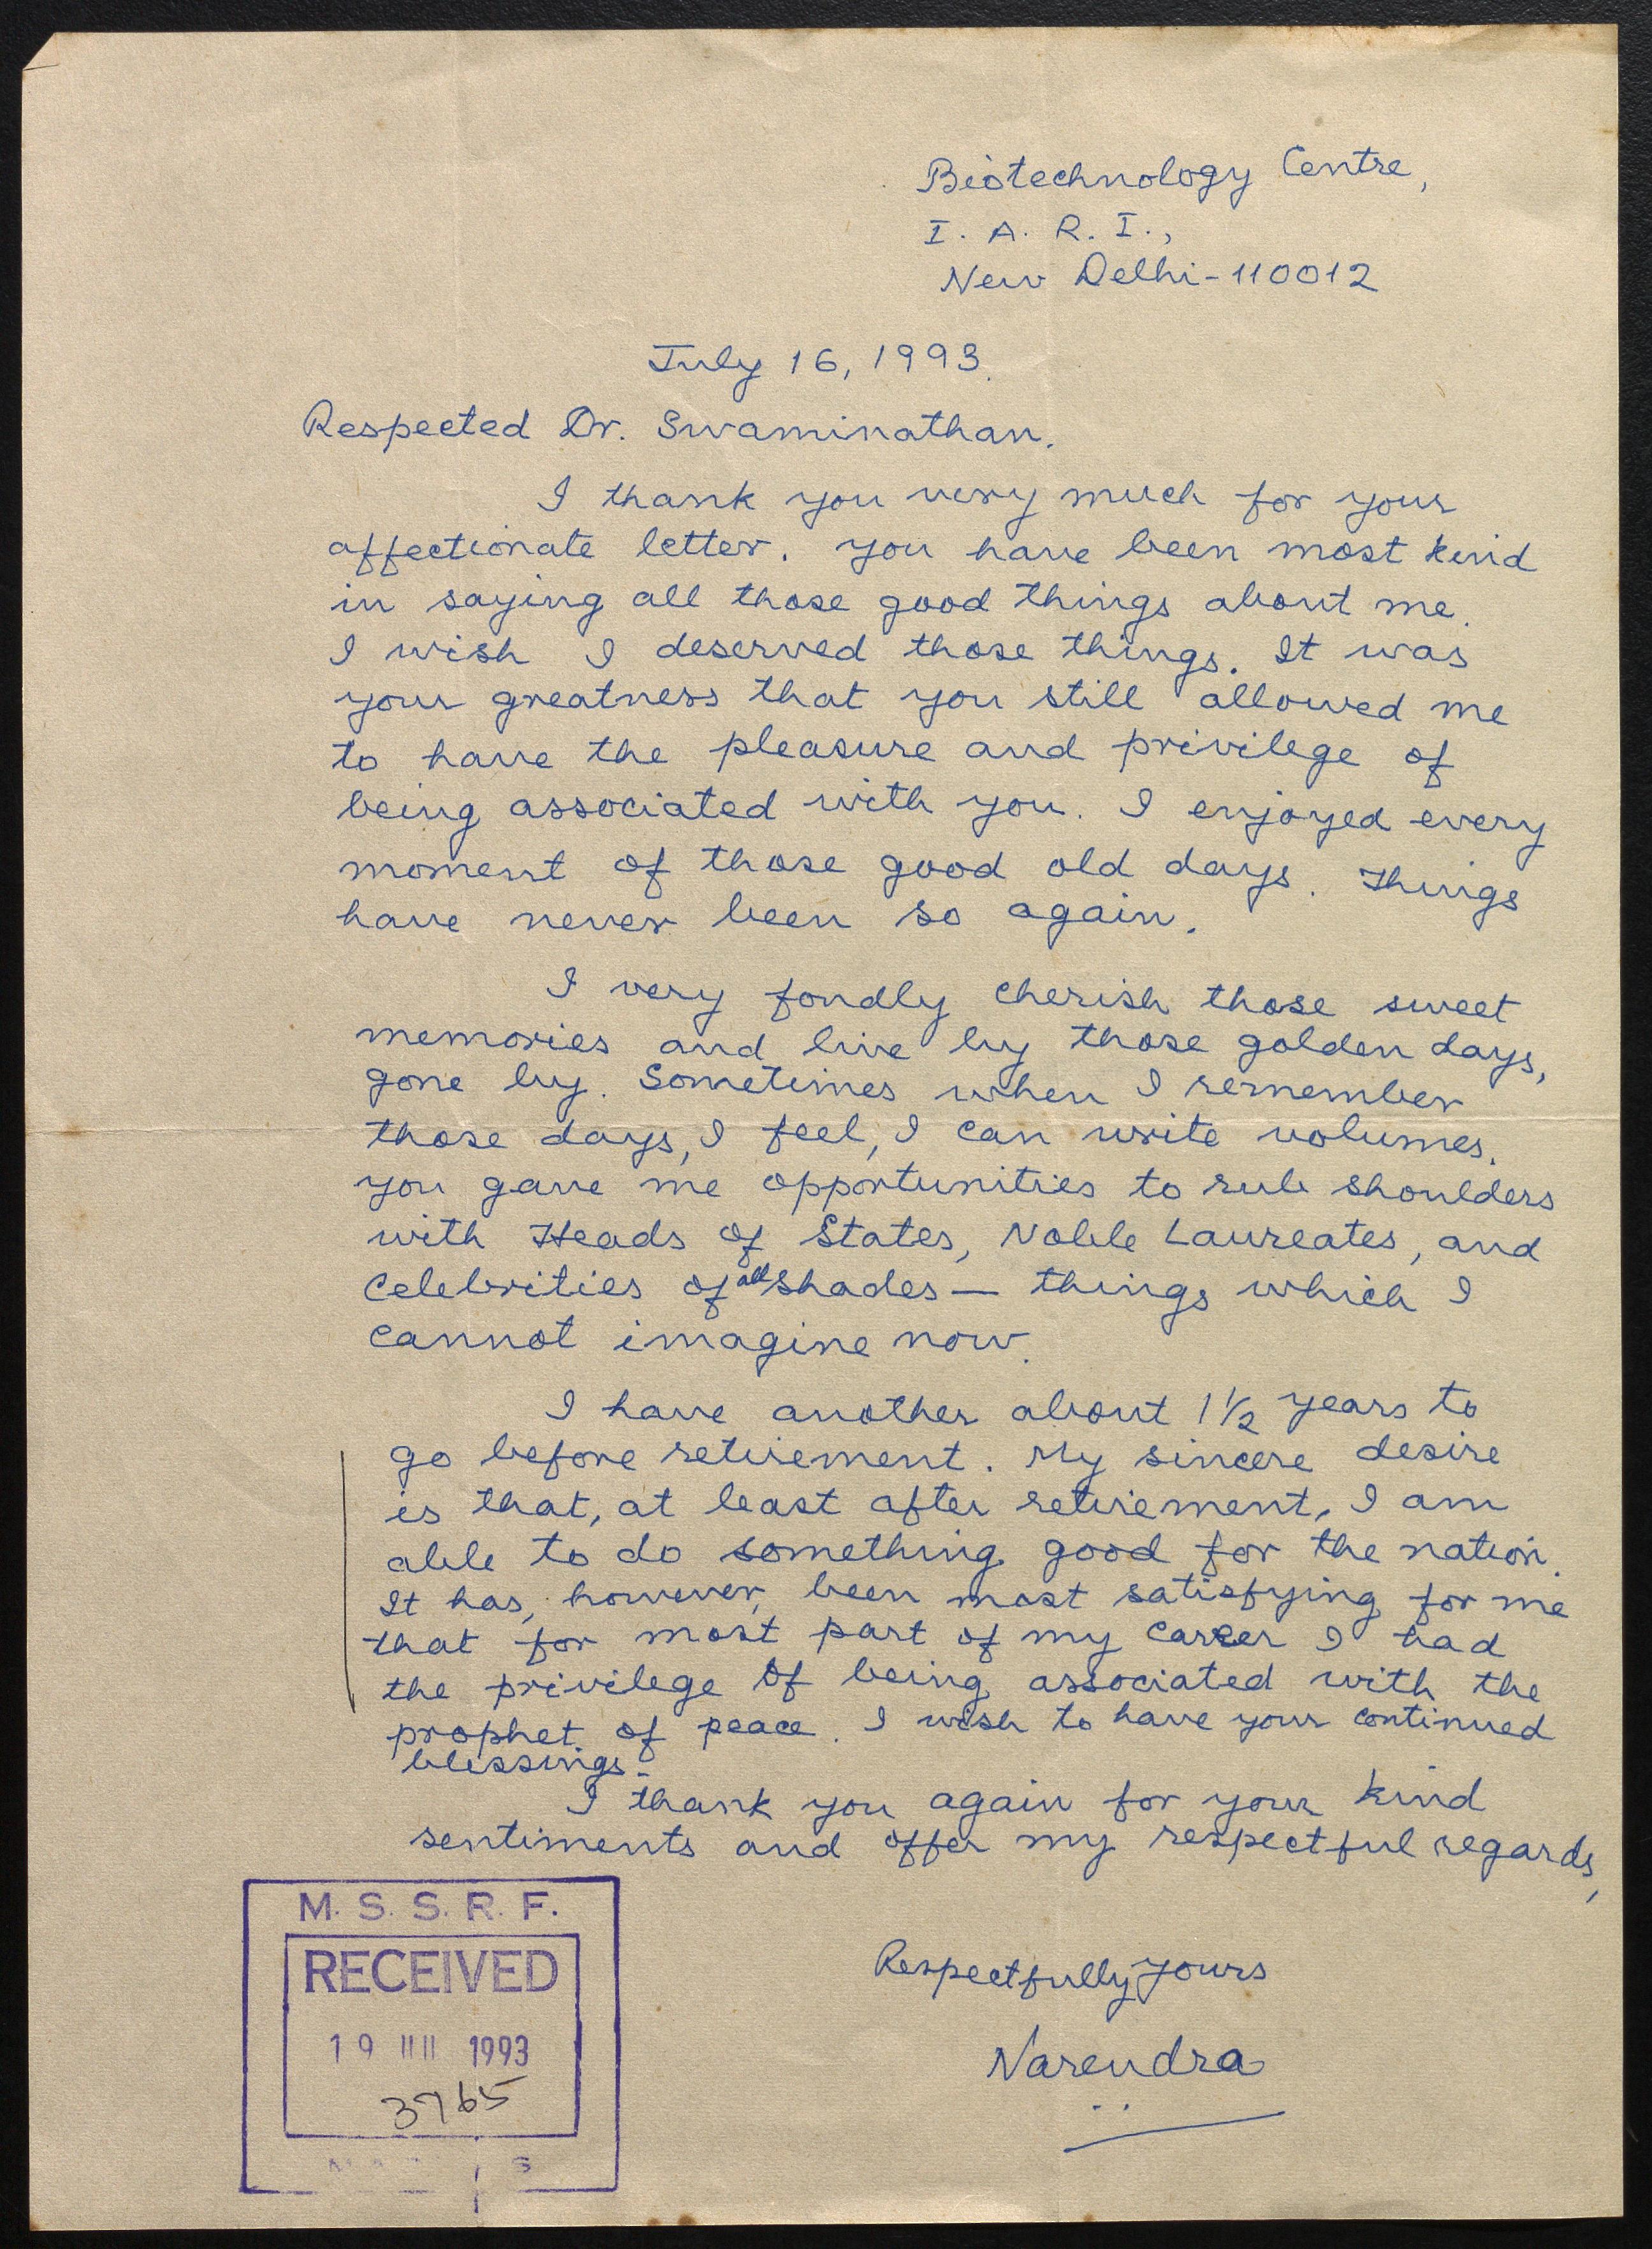 Biotechnology Centre,
I. A. R. I.,
New Delhi-110012
July 16, 1993.
Respected Dr. Swaminathan.
I thank you very much for your
affectionate letter. You have been most kind
in saying all those good things about me.
I wish I deserved those things. It was
your greatness that you still allowed me
to have the pleasure and privilege of
being associated with you. I enjoyed every
moment of those good old days. Things
have never been so again.
I very fondly cherish those sweet
memories and live by those golden days,
gone by. Sometimes when I remember
those days, I feel, I can write volumes.
You gave me opportunities to rub shoulders
with Heads of States, Noble Laureates, and
celebrities of all shades — things which I
cannot imagine now.
I have another about 1½ years to
go before retirement. My sincere desire
is that, at least after retirement, I am
able to do something good for the nation.
It has, however, been most satisfying for me
that for most part of my career I had
the privilege of being associated with the
prophet of peace. I wish to have your continued
blessings.
I thank you again for your kind
sentiments and offer my respectful regards,
Respectfully yours
Narendra
M. S. S. R. F.
RECEIVED
19 1993
3765